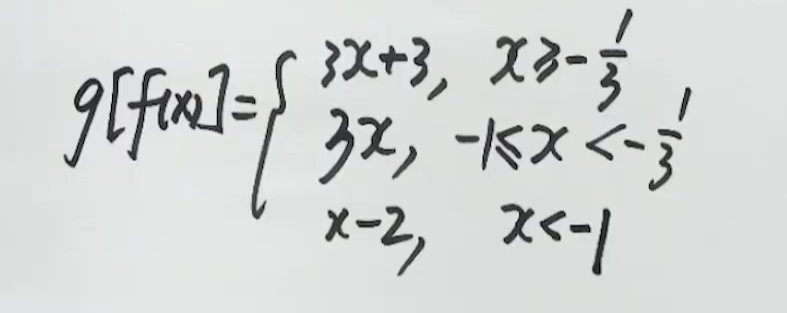 g[f(x)]={ 3x+3, x≥-1/3
3x, -1≤x<-1/3
x-2, x<-1